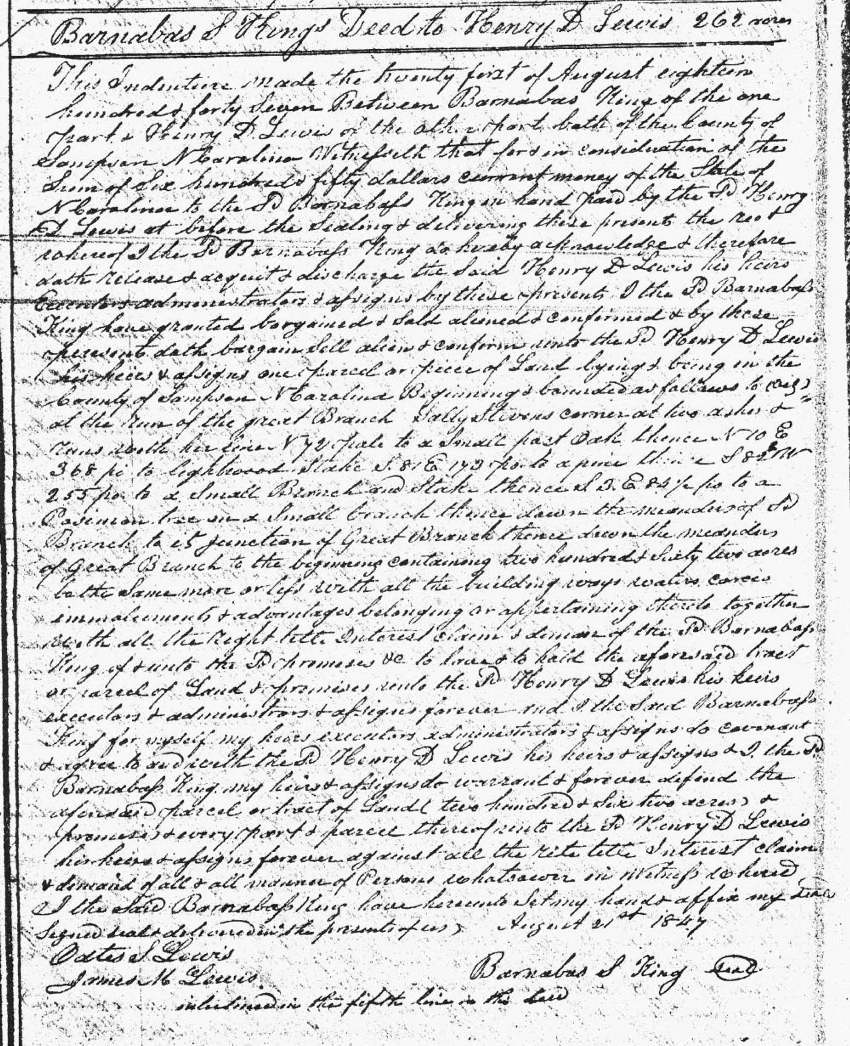 Barnabas S King's Deed to Henry D Lewis 262 acres
This Indenture made the twenty first of August eighteen
hundred & forty seven Between Barnabas King of the one
part & Henry D. Lewis of the other part both of the County of
Sampson N Carolina Witnesseth that for & in consideration of the
Sum of Six hundred & fifty dollars current money of the State of
N Carolina to the Sd Barnabass King in hand paid by the Sd Henry
D Lewis at before the Sealing & delivering these presents the
whereof I the Sd Barnabass King do hereby acknowledge & therefore
doth release & acquit & discharge the said Henry D Lewis his heirs
administrators & assigns by these presents I the Sd Barnabass
King have granted bargained & Sold aliened & confirmed & by these
present doth bargain Sell alien & conform unto the Sd Henry D Lewis
his heirs & assigns one parcel or piece of Land lying & being in the
County of Sampson N Carolina Beginning & bounded as follows to
at the run of the great Branch Sally Stivens corner at two ashes &
runs with her line N 72 to a Small post Oak thence N 10 E
368 po to lightwood Stake S. 81 E po to a pine S 82 W
255 po to a Small Branch and Stake thence S 3. E. 84½ po to a
tree in a Small branch thence down the meanders of Sd
Branch to it's junction of Great Branch thence down the meanders
of Great Branch to the beginning containing two hundred & Sixty two acres
be the Same more or less with all the building ways waters
& advantages belonging or appertaining thereto together
with all the right title Interest claim & of the Sd Barnabass
King of & unto the Sd premises &c to have & to hold the aforesaid tract
or parcel of Land & premises unto the Sd Henry D Lewis his heirs
executors & administrators & assigns forever and I the Said Barnabass
King for myself my heirs executors administrators & assigns do covenant
& agree to and with the Sd Henry D Lewis his heirs & assigns & I. the Sd
Barnabass King my heirs & assigns do warrant & forever defend the
aforesaid parcel or tract of Land ( two hundred & Six two acres) &
premises & every part & parcel thereof unto the Sd Henry D Lewis
his heirs & assigns forever against all the rite title Interest claim
& demand of all & all manner of Persons whatsoever in Witness whered
I the Said Barnabass King have hereunto Set my hand & affix my seal
Signed seal & delivered in the presents of us } August 21st 1847
Oates S. Lewis
James M Lewis Barnabas S King seal
interlined in the fifth line in the deed